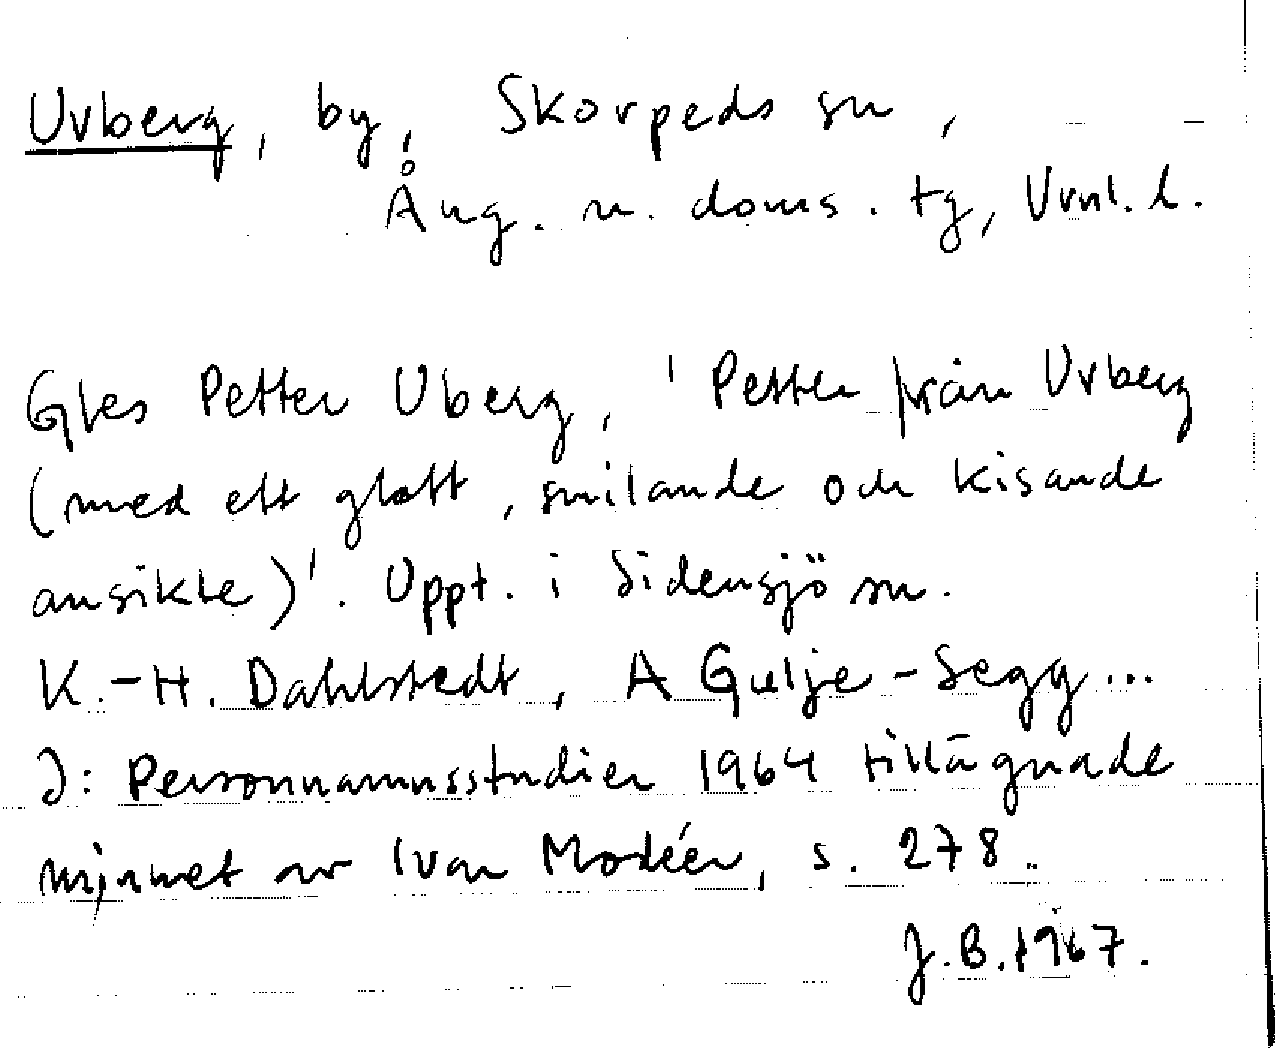 Uvberg, by, Skorpeds sn,
Ång. n. doms. tg, Vvnl. l.
Gles Petter Uberg, 'Petter från Uvberg
(med ett glatt, smilande och kisande
ansikte)'. Uppt. i Sidensjö sn.
K.-H. Dahlstedt, A Gulje-Segg...
I: Personnamnsstudier 1964 tillägnade
minnet av Ivar Modéer, s. 278.
J.B. 1967.